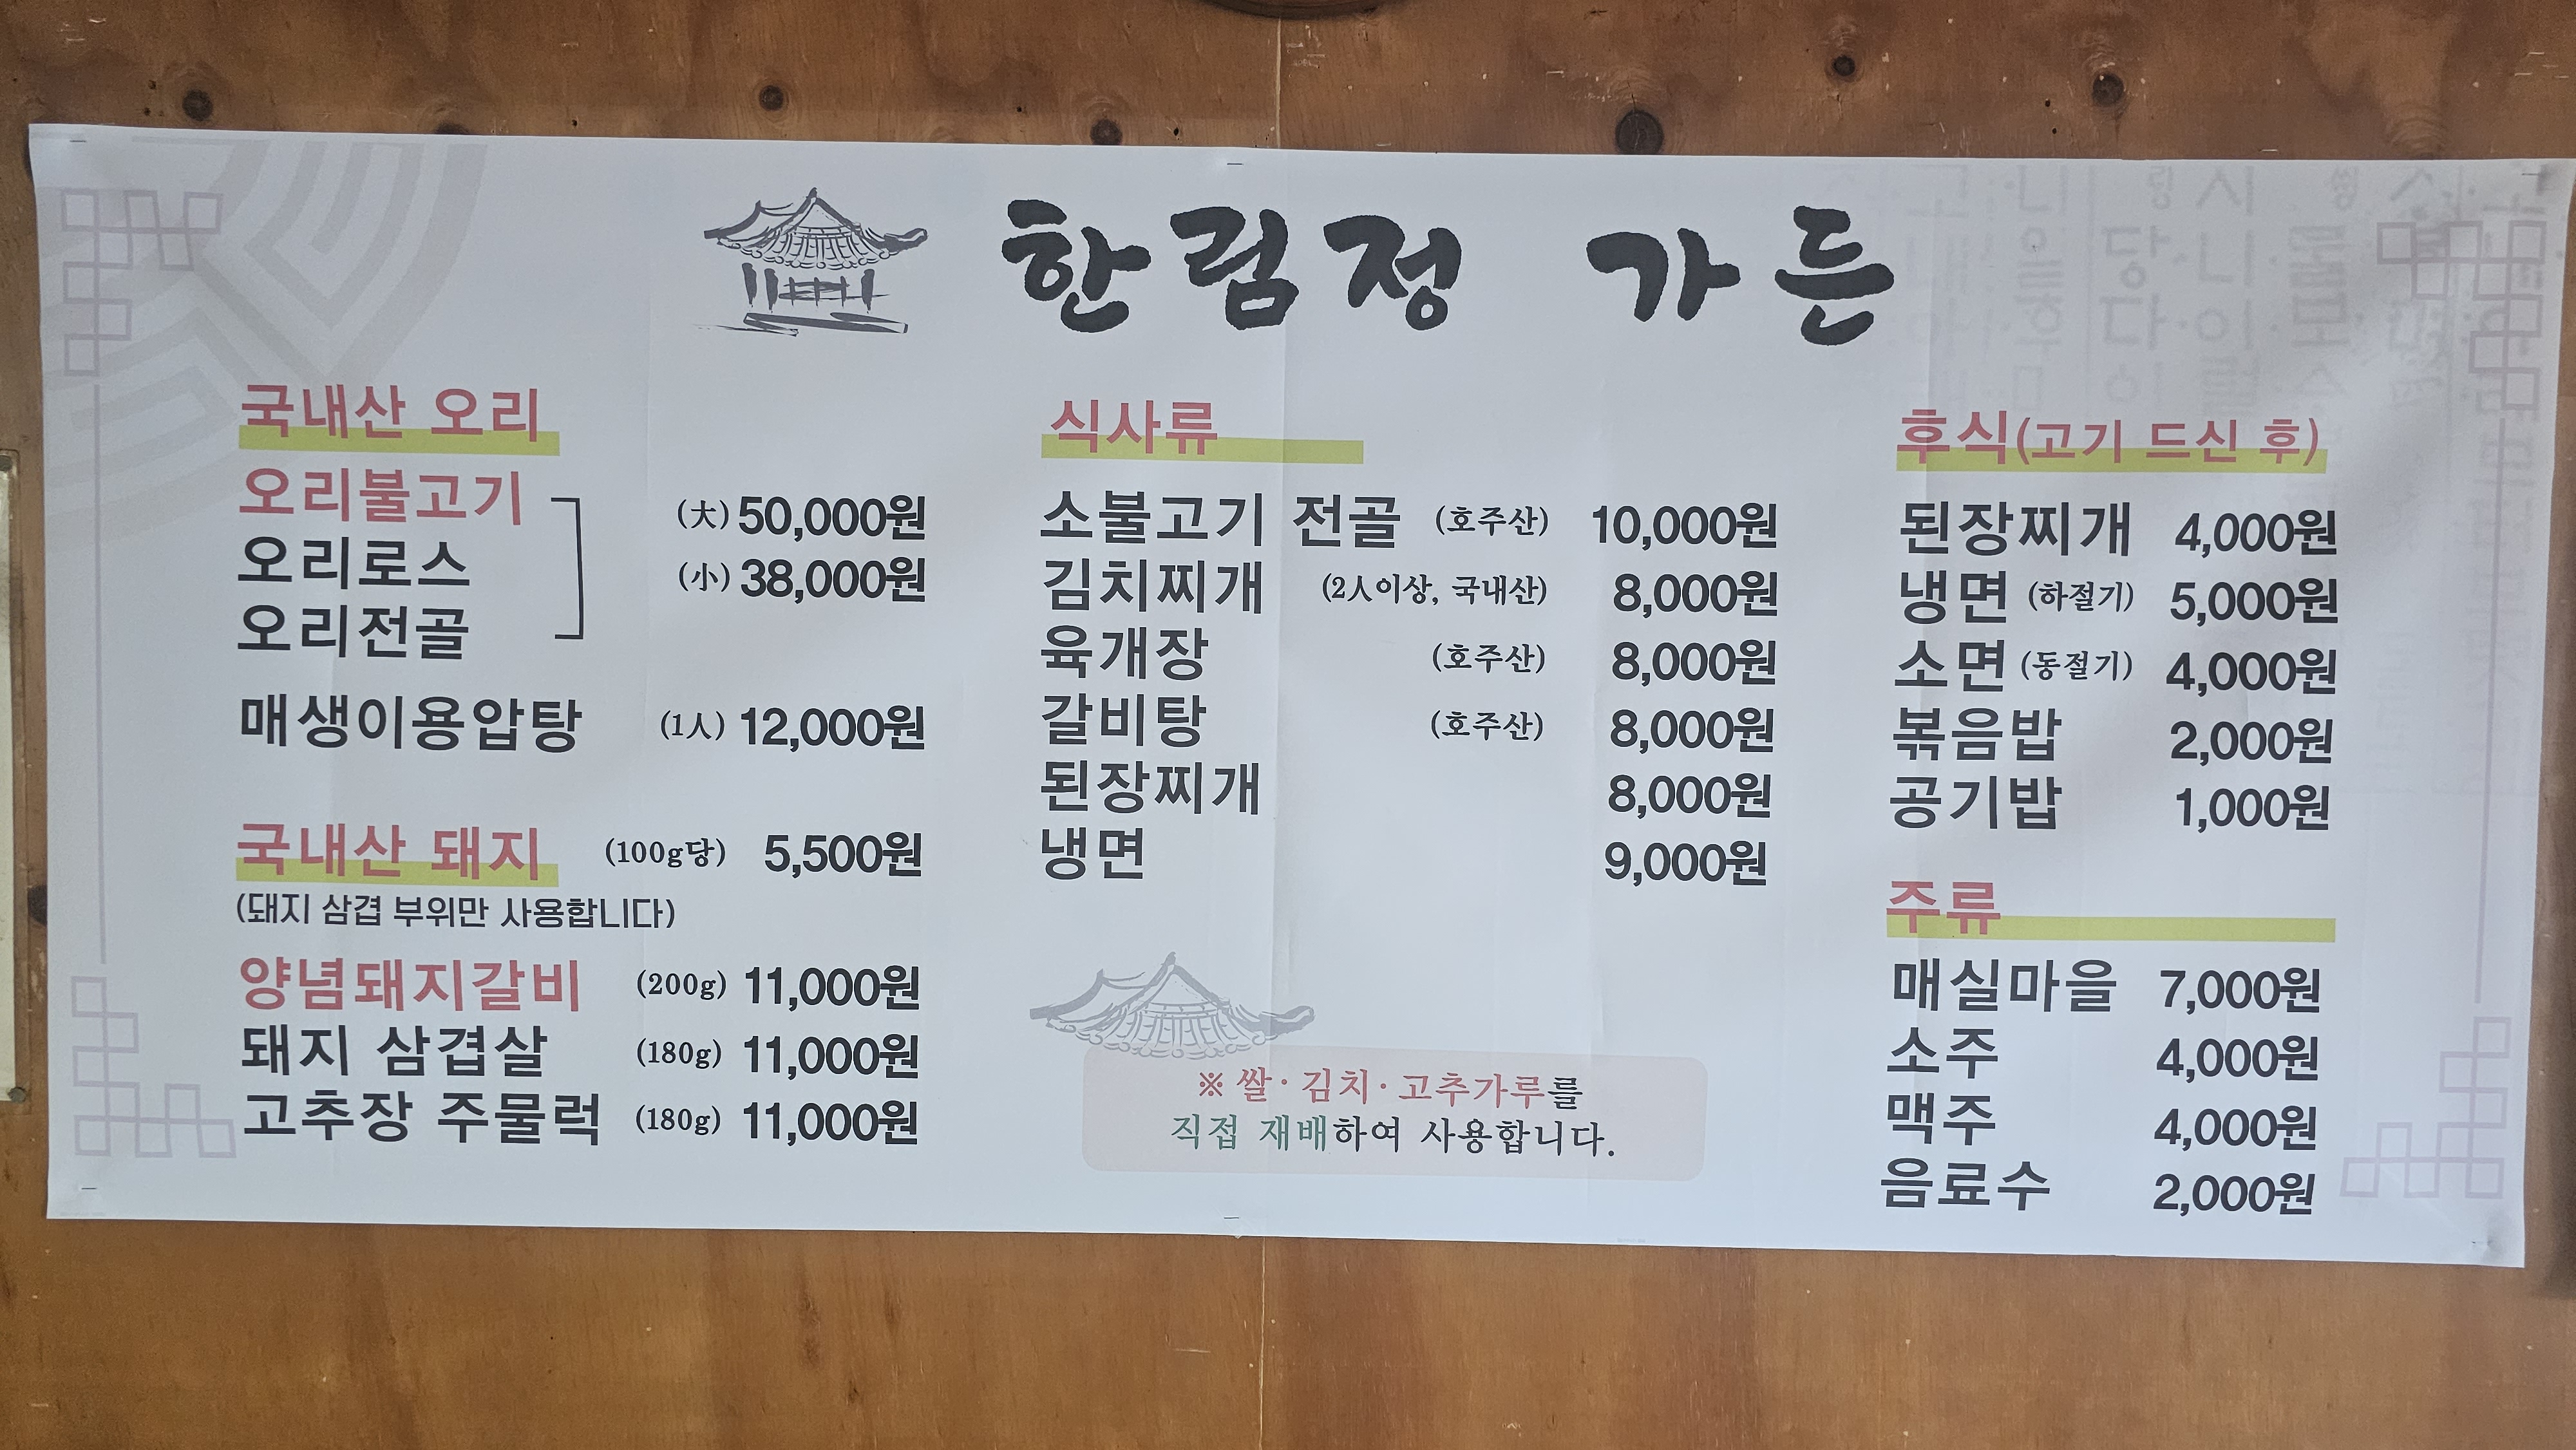 한림정 가든
국내산 오리
오리불고기
오리로스
오리전골
(大) 50,000원
(小) 38,000원
매생이용압탕 (1人) 12,000원
국내산 돼지 (100g당) 5,500원
(돼지 삼겹 부위만 사용합니다)
양념돼지갈비 (200g) 11,000원
돼지 삼겹살 (180g) 11,000원
고추장 주물럭 (180g) 11,000원
식사류
소불고기 전골 (호주산) 10,000원
김치찌개 (2人이상, 국내산) 8,000원
육개장 (호주산) 8,000원
갈비탕 (호주산) 8,000원
된장찌개 8,000원
냉면 9,000원
※ 쌀·김치·고추가루를
직접 재배하여 사용합니다.
후식(고기 드신 후)
된장찌개 4,000원
냉면 (하절기) 5,000원
소면 (동절기) 4,000원
볶음밥 2,000원
공기밥 1,000원
주류
매실마을 7,000원
소주 4,000원
맥주 4,000원
음료수 2,000원